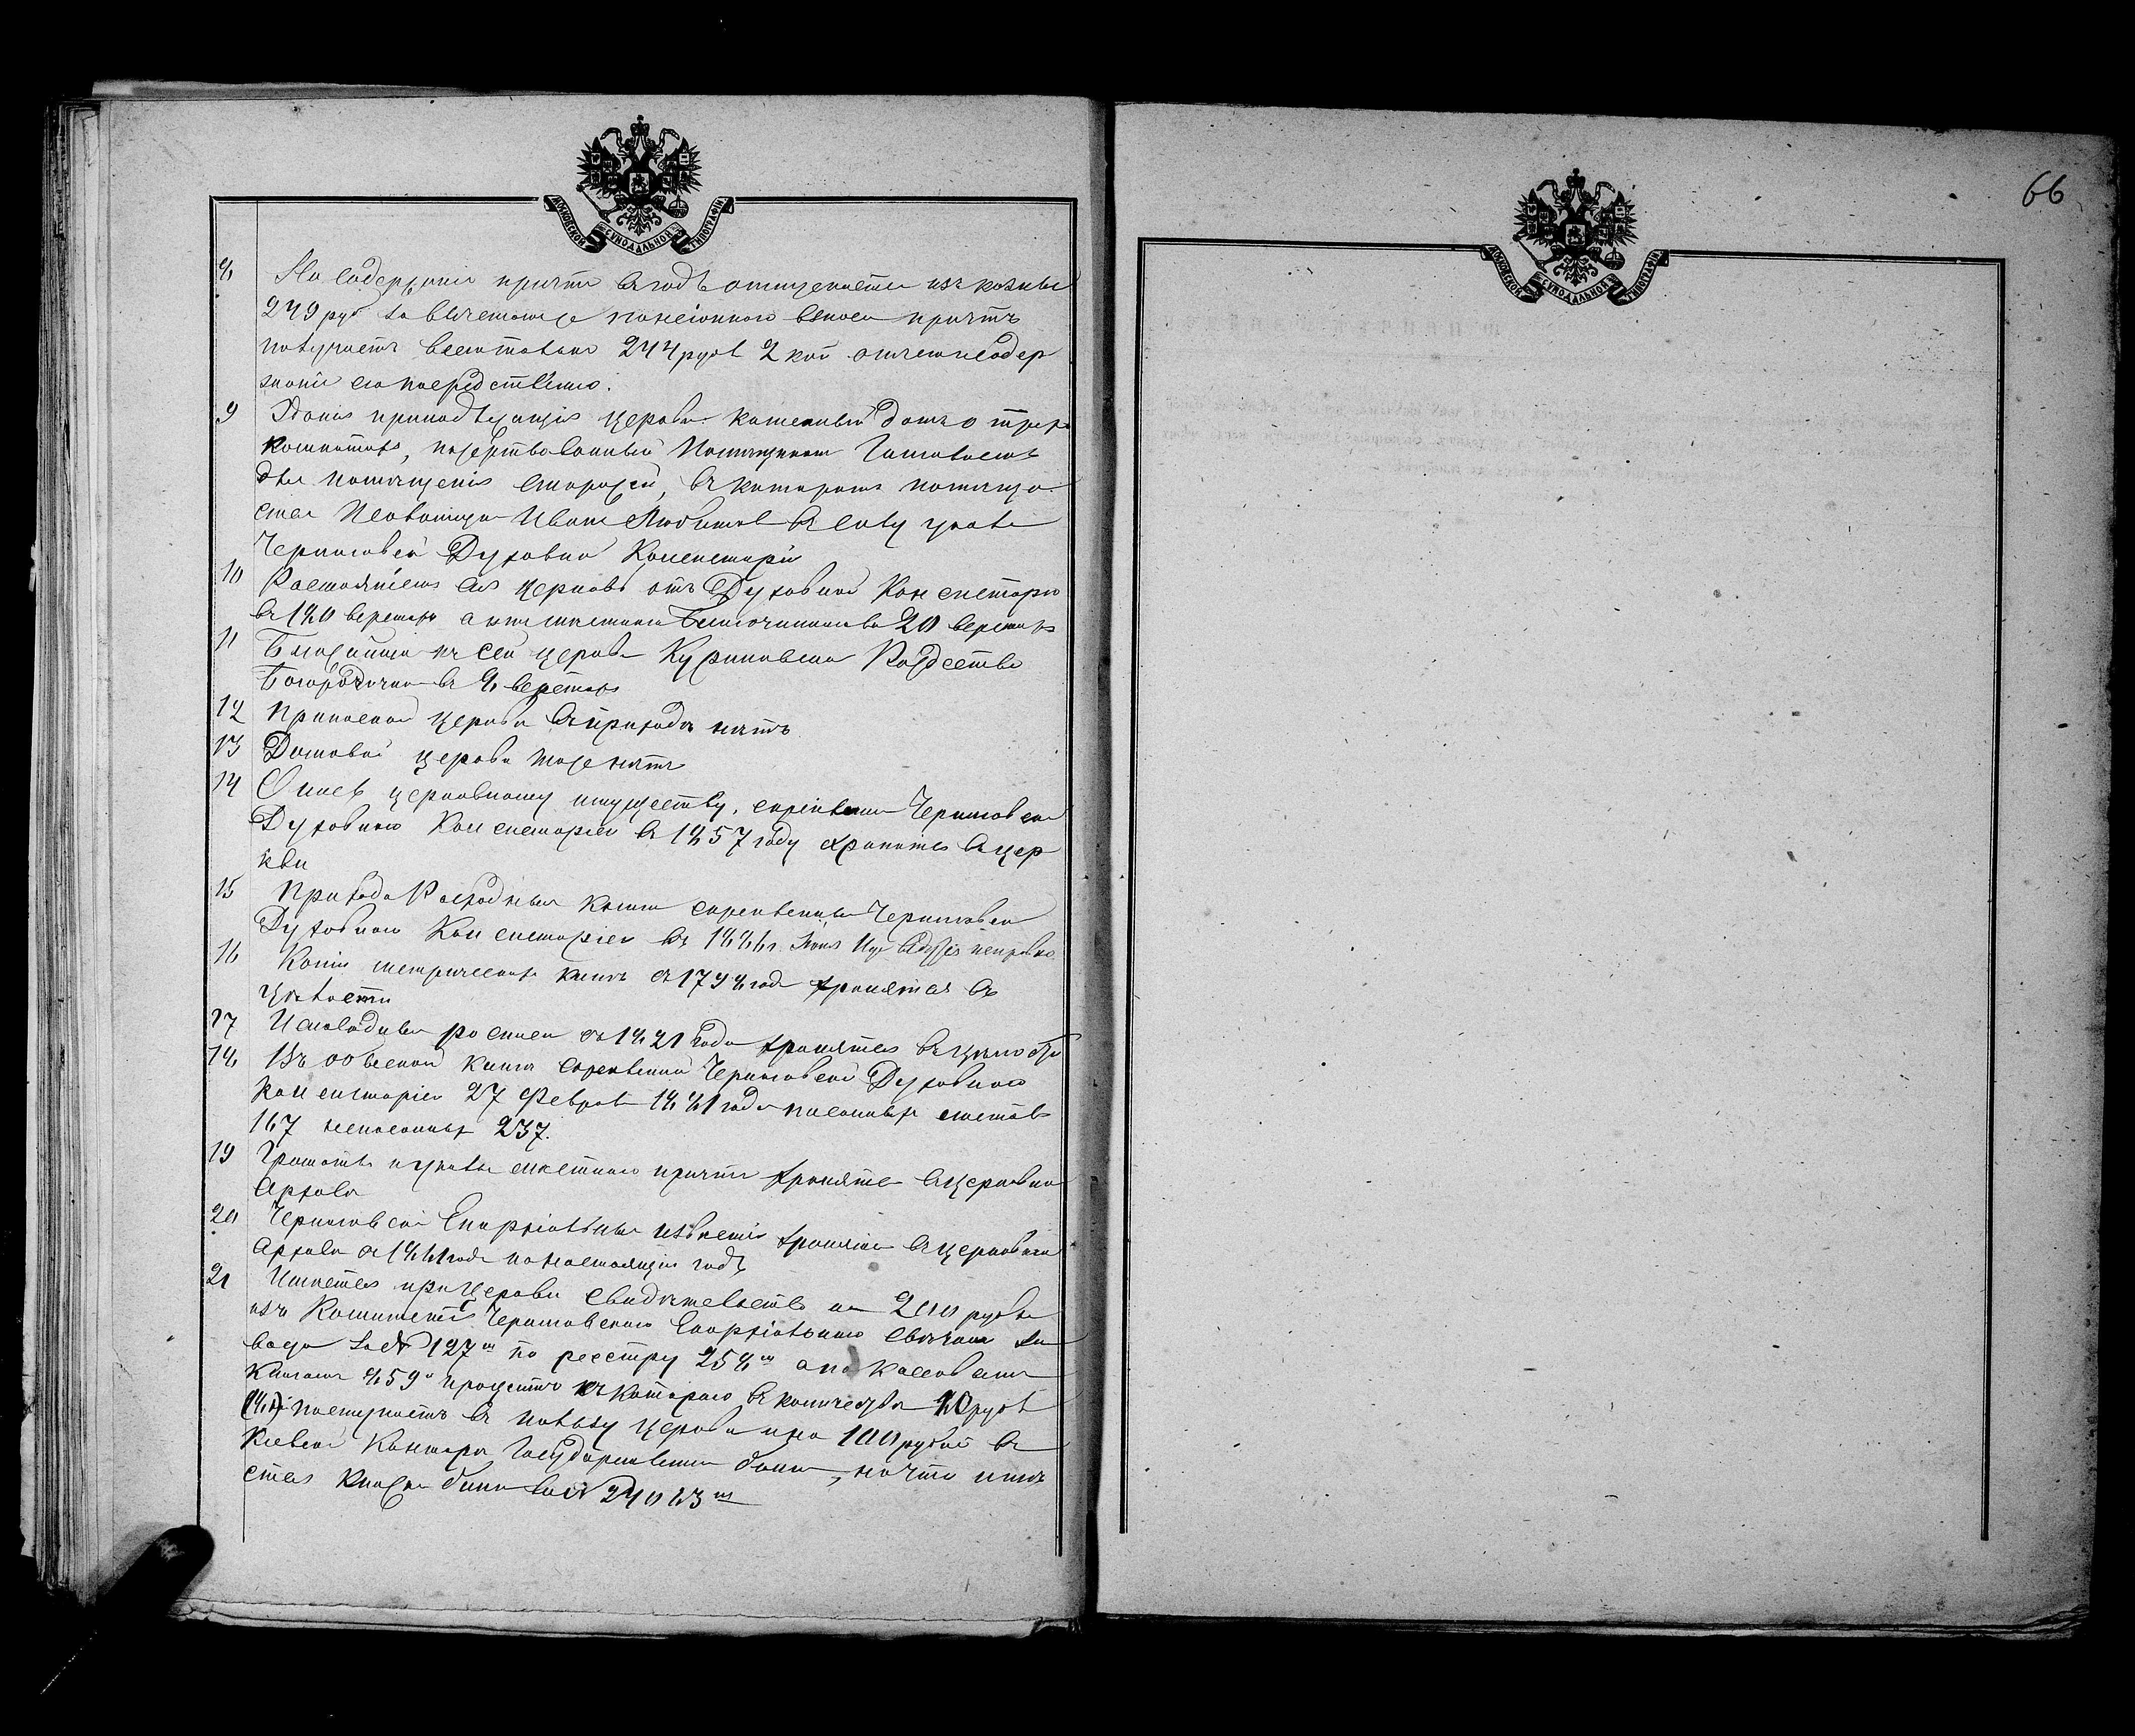 МОСКОВСКОЙ СѴНОДАЛЬНОЙ ТИПОГРАФІИ
8 На содержаніе причта въ годъ отпускается изъ казны
249 руб за вычетомъ же пенсіоннаго взноса причтъ
получаетъ всего только 244 рубл 2 коп отчего и содер
жаніе его посредственно.
9 Зданія принадлежащія церкви каменный домъ о трехъ
комнатахъ, пожертвованный Помѣщикомъ
для помѣщенія сторожей, въ которомъ помѣща
ется Псаломщикъ Иванъ Любимовъ въ силу указа
Черниговской Духовной Консисторіи
10 Разстояніемъ сія церковь отъ Духовной Консисторіи
въ 180 верстахъ а отъ мѣстнаго Благочиннаго въ 20 верстахъ
11 Ближайшая къ сей церкви Куриловская Рождество
Богородичная въ 8 верстахъ
12 Приписной церкви въ приходѣ нѣтъ
13 Домовой церкви тоже нѣтъ
14 Опись церковному имуществу, скрѣпленная Черниговской
Духовною Консисторіею въ 1857 году хранится въ цер
кви
15 Приходо Расходныя книги скрѣпленныя Черниговской
Духовною Консисторіею въ 1886 г.
16 Копіи метрическихъ книгъ съ 1798 года хранятся въ
цѣлости
17 Исповѣдныя росписи съ 1821 года хранятся въ цѣлости
18 Въ обыскной книгѣ скрѣпленной Черниговской Духовною
Консисторіею 27 Февраля 1881 года писанныхъ листовъ
167 неписанныхъ 237.
19 Грамоты и указы мѣстнаго причта хранятся въ церковномъ
Архивѣ
20 Черниговскія Епархіальныя извѣстія хранятся въ церковномъ
Архивѣ съ 1861 года по настоящій годъ
21 Имѣется при Церкви свидѣтельство на 200 рублей
изъ Комитета Черниговскаго Епархіальнаго свѣчнаго за
вода за № 127м по реестру 258м а по кассовымъ
книгамъ 859 процентъ съ котораго въ количествѣ 10 рублей
поступаетъ въ пользу церкви и на 100 рублей въ
Кіевской Конторѣ Государственнаго банка, на что имѣ
ется книжка банка за №
МОСКОВСКОЙ СѴНОДАЛЬНОЙ ТИПОГРАФІИ
66